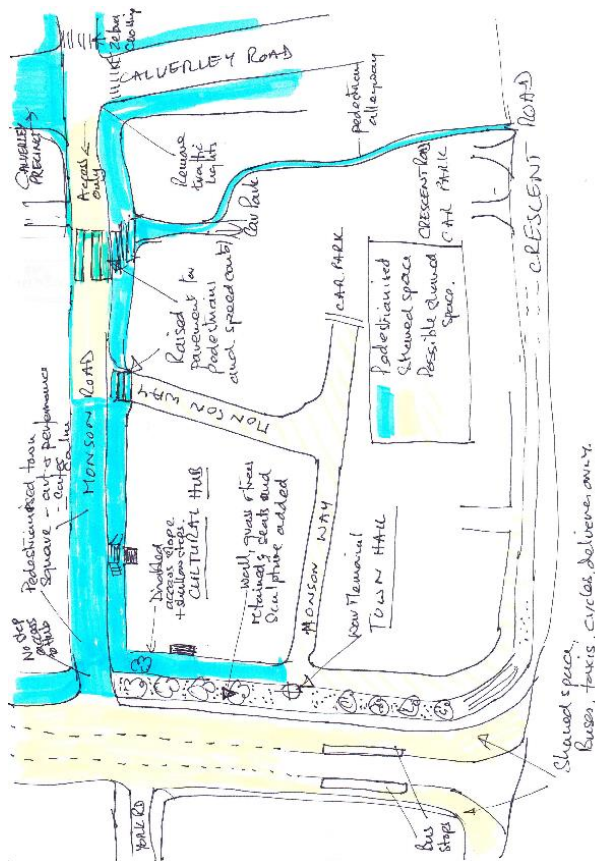 CALVERLEY
PRECINCT
Access
only
Zebra
Crossing
CALVERLEY ROAD
Remove
traffic
lights
pedestrian
alleyway
Car Park
CRESCENT ROAD
CAR PARK
CRESCENT ROAD
Raised
pavement for
pedestrians
and speed control
CAR PARK
Pedestrianised
Shared space
Possible shared
space.
MONSON ROAD
MONSON WAY
Pedestrianised town
Square – art & performance
No step
access
to hub
Disabled
access slope
+ shallow steps.
CULTURAL HUB
Wall, grass & trees
retained, seats and
Sculpture added
MONSON WAY
War Memorial
TOWN HALL
YORK RD
Bus
Stops
Shared space,
Buses, taxis, cycles, deliveries only.